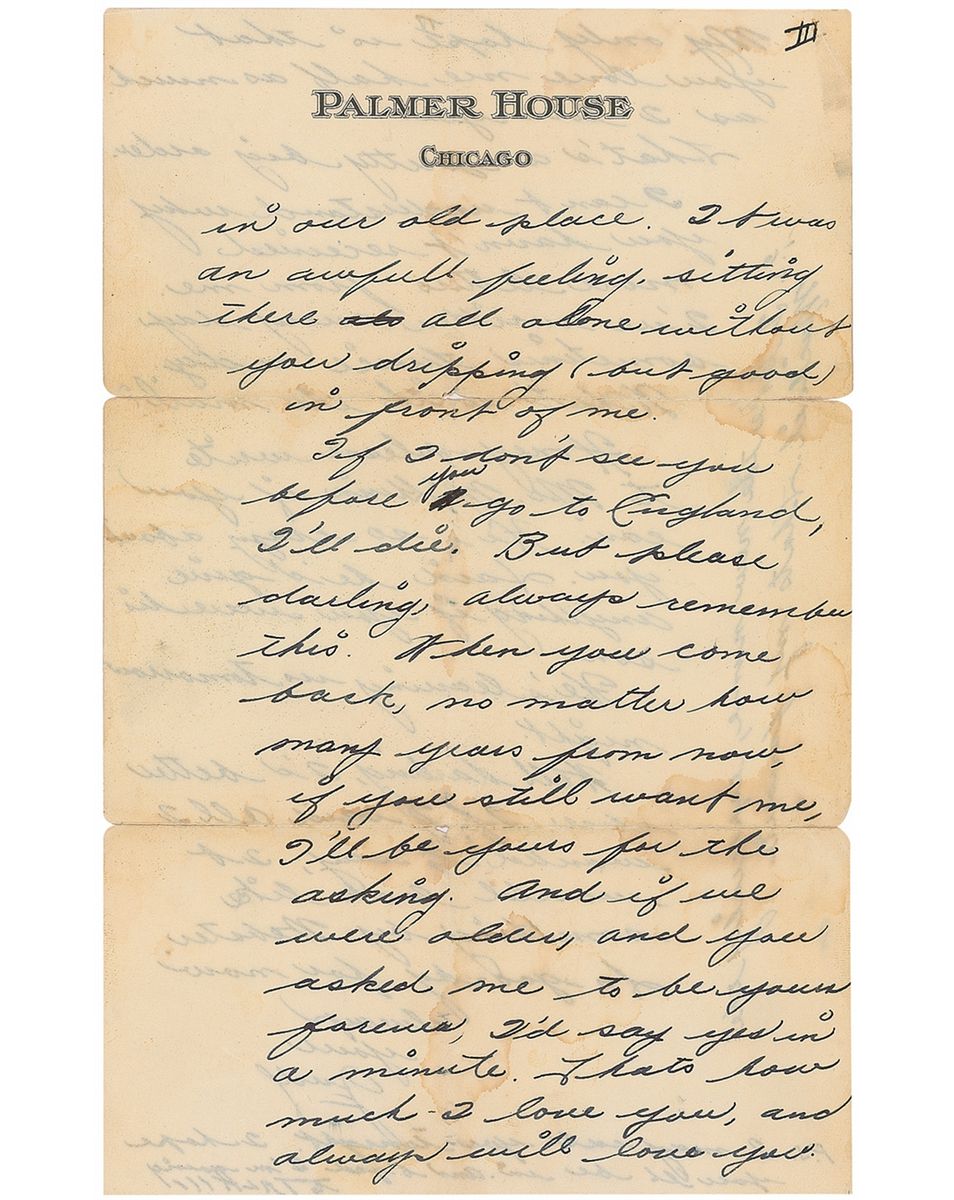 III
PALMER HOUSE
CHICAGO
in our old place. It was
an awfull feeling, sitting
there all alone without
you dripping (but good)
in front of me.
If I don't see you
before you go to England,
I'll die. But please
darling, always remember
this. When you come
back, no matter how
many years from now,
if you still want me,
I'll be yours for the
asking. And if we
were older, and you
asked me to be yours
forever, I'd say yes in
a minute. Thats how
much I love you, and
always will love you.